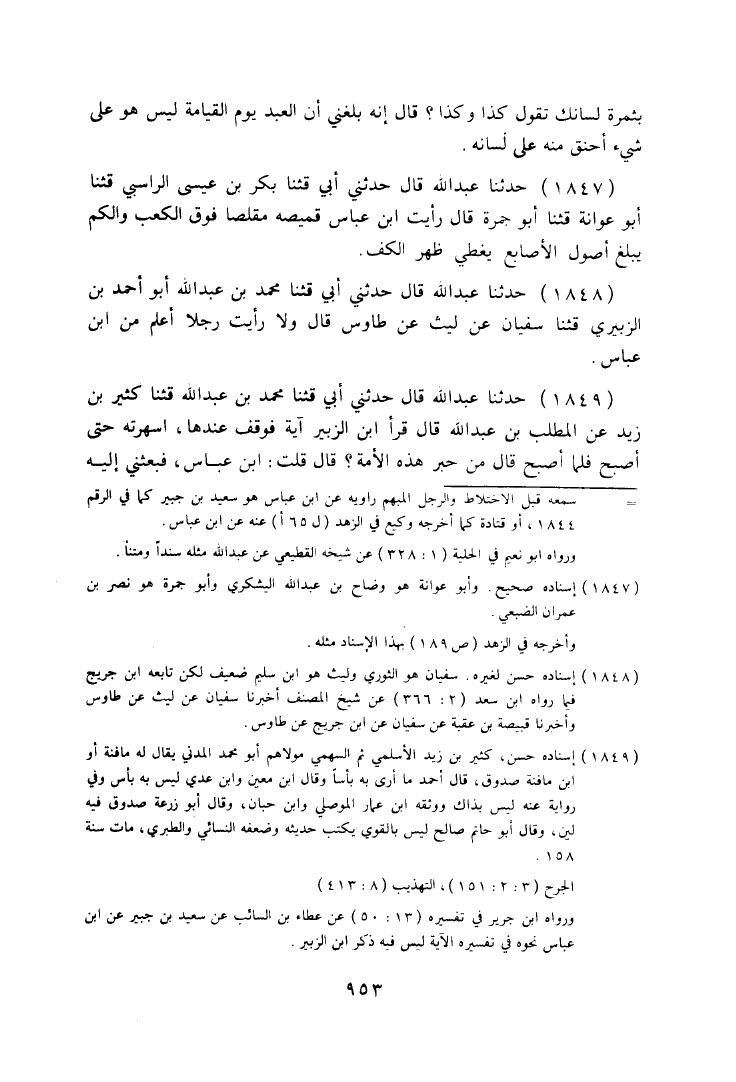 بثمرة لسانك تقول كذا وكذا ؟ قال إنه بلغني أن العبد يوم القيامة ليس هو على
شيء أحنق منه على لسانه .
(١٨٤٧) حدثنا عبدالله قال حدثني أبي قثنا بكر بن عيسى الراسبي قثنا
أبو عوانة قثنا أبو جمرة قال رأيت ابن عباس قميصه مقلصا فوق الكعب والكم
يبلغ أصول الأصابع يغطي ظهر الكف.
(١٨٤٨) حدثنا عبدالله قال حدثني أبي قثنا محمد بن عبدالله أبو أحمد بن
الزبيري قثنا سفيان عن ليث عن طاوس قال ولا رأيت رجلا أعلم من ابن
عباس .
(١٨٤٩) حدثنا عبدالله قال حدثني أبي قثنا محمد بن عبدالله قثنا كثير بن
زيد عن المطلب بن عبدالله قال قرأ ابن الزبير آية فوقف عندها، اسهرته حتى
أصبح فلما أصبح قال من حبر هذه الأمة؟ قال قلت: ابن عباس، فبعثني إليه
= سمعه قبل الاختلاط والرجل المبهم راويه عن ابن عباس هو سعيد بن جبير كما في الرقم
١٨٤٤، أو قتادة كما أخرجه وكيع في الزهد (ل ٦٥ أ) عنه عن ابن عباس.
ورواه ابو نعيم في الحلية (١ : ٣٢٨) عن شيخه القطيعي عن عبدالله مثله سنداً ومتناً.
(١٨٤٧) إسناده صحيح. وأبو عوانة هو وضاح بن عبدالله اليشكري وأبو جمرة هو نصر بن
عمران الضبعي.
وأخرجه في الزهد (ص ١٨٩) بهذا الإسناد مثله.
(١٨٤٨) إسناده حسن لغيره. سفيان هو الثوري وليث هو ابن سليم ضعيف لكن تابعه ابن جريج
فيما رواه ابن سعد (٢ : ٣٦٦) عن شيخ المصنف أخبرنا سفيان عن ليث عن طاوس
وأخبرنا قبيصة بن عقبة عن سفيان عن ابن جريج عن طاوس.
(١٨٤٩) إسناده حسن، كثير بن زيد الأسلمي ثم السهمي مولاهم أبو محمد المدني يقال له مافنة أو
ابن مافنة صدوق، قال أحمد ما أرى به بأساً وقال ابن معين وابن عدي ليس به بأس وفي
رواية عنه ليس بذاك ووثقه ابن عمار الموصلي وابن حبان، وقال أبو زرعة صدوق فيه
لين، وقال أبو حاتم صالح ليس بالقوي يكتب حديثه وضعفه النسائي والطبري، مات سنة
١٥٨ .
الجرح (٣ : ٢ : ١٥١)، التهذيب (٨ : ٤١٣)
ورواه ابن جرير في تفسيره (١٣ : ٥٠) عن عطاء بن السائب عن سعيد بن جبير عن ابن
عباس نحوه في تفسيره الآية ليس فيه ذكر ابن الزبير.
٩٥٣